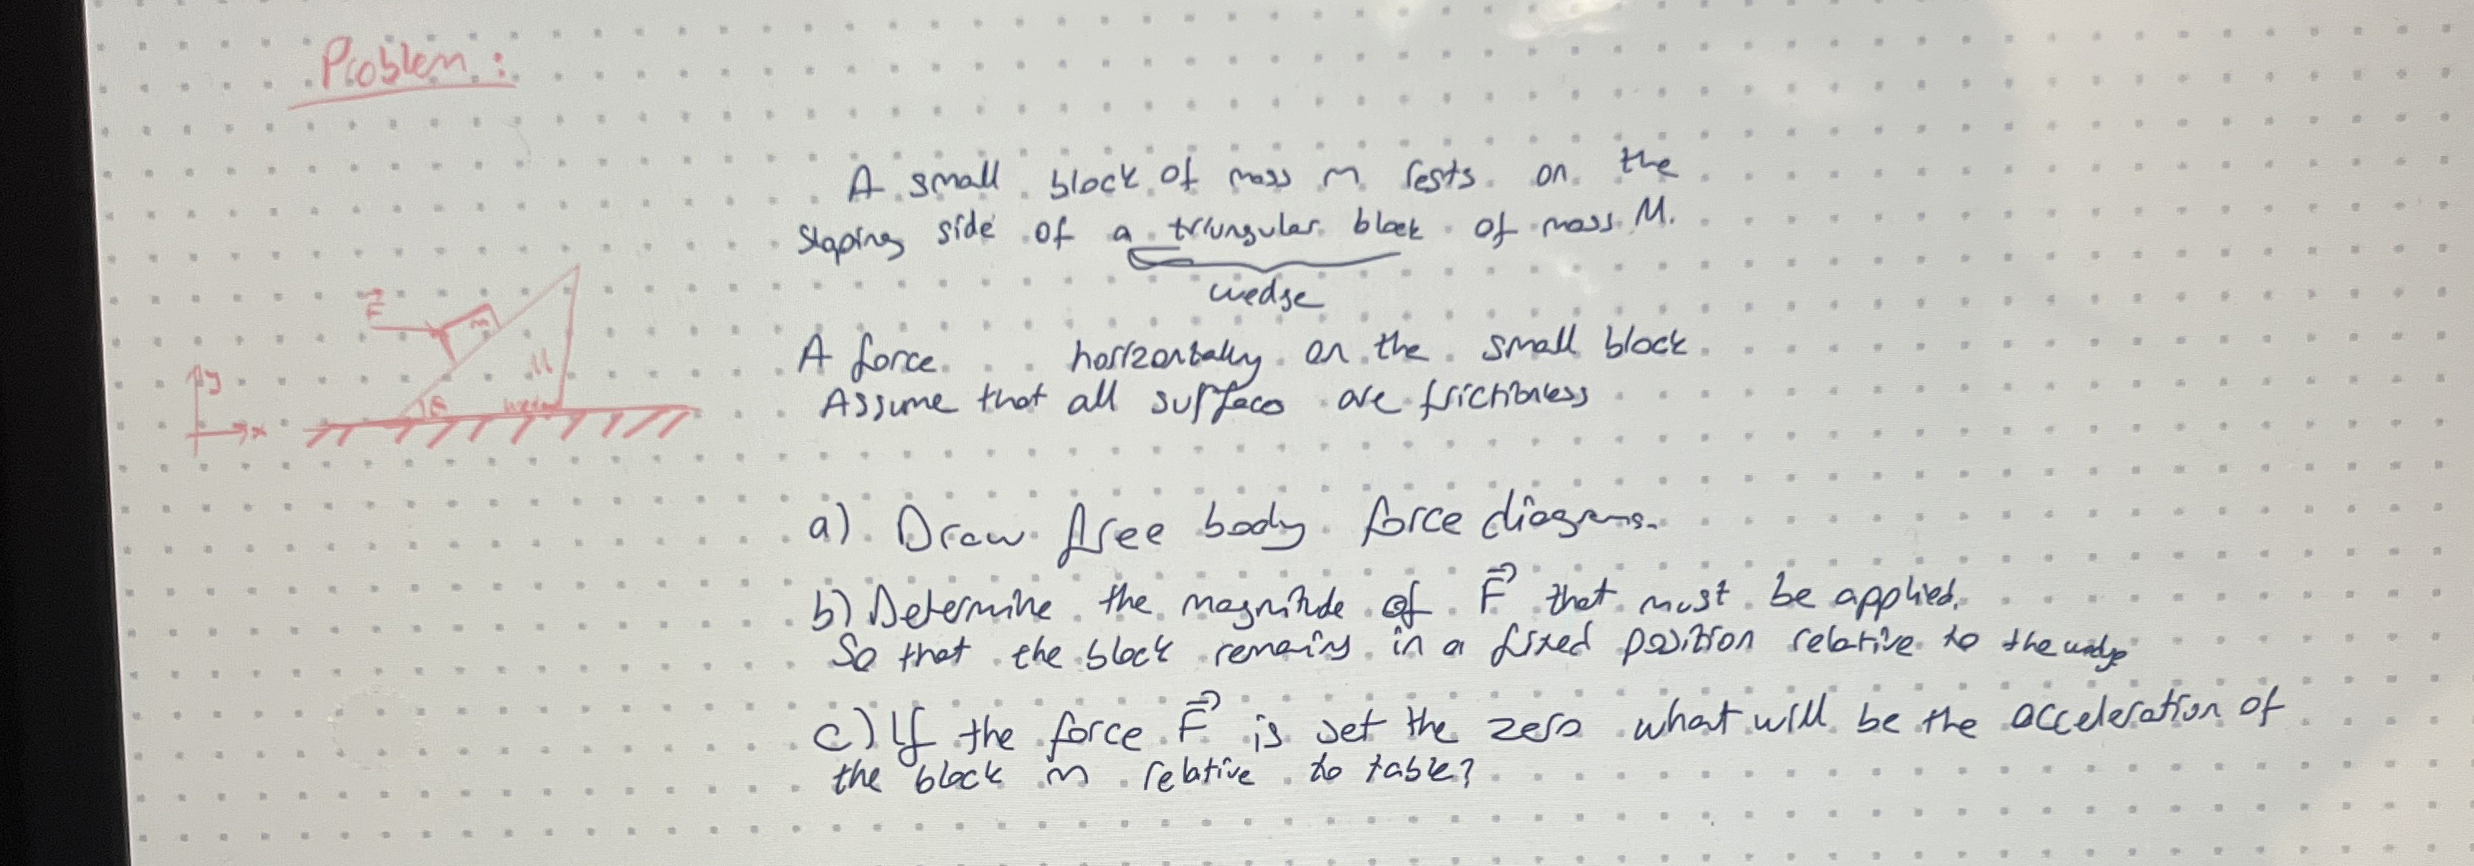 Problem:
A small block of mass m rests on the
sloping side of a triungular block of mass M.
wedge
A force horizontally on the small block
Assume that all surfaces are frictionless
F
m
M
y
x
θ
a) Draw free body force diagrams.
b) Determine the magnitude of F that must be applied,
So that the block remains in a fixed position relative to the wedge
c) If the force F is set the zero what will be the acceleration of
the block m relative to table?